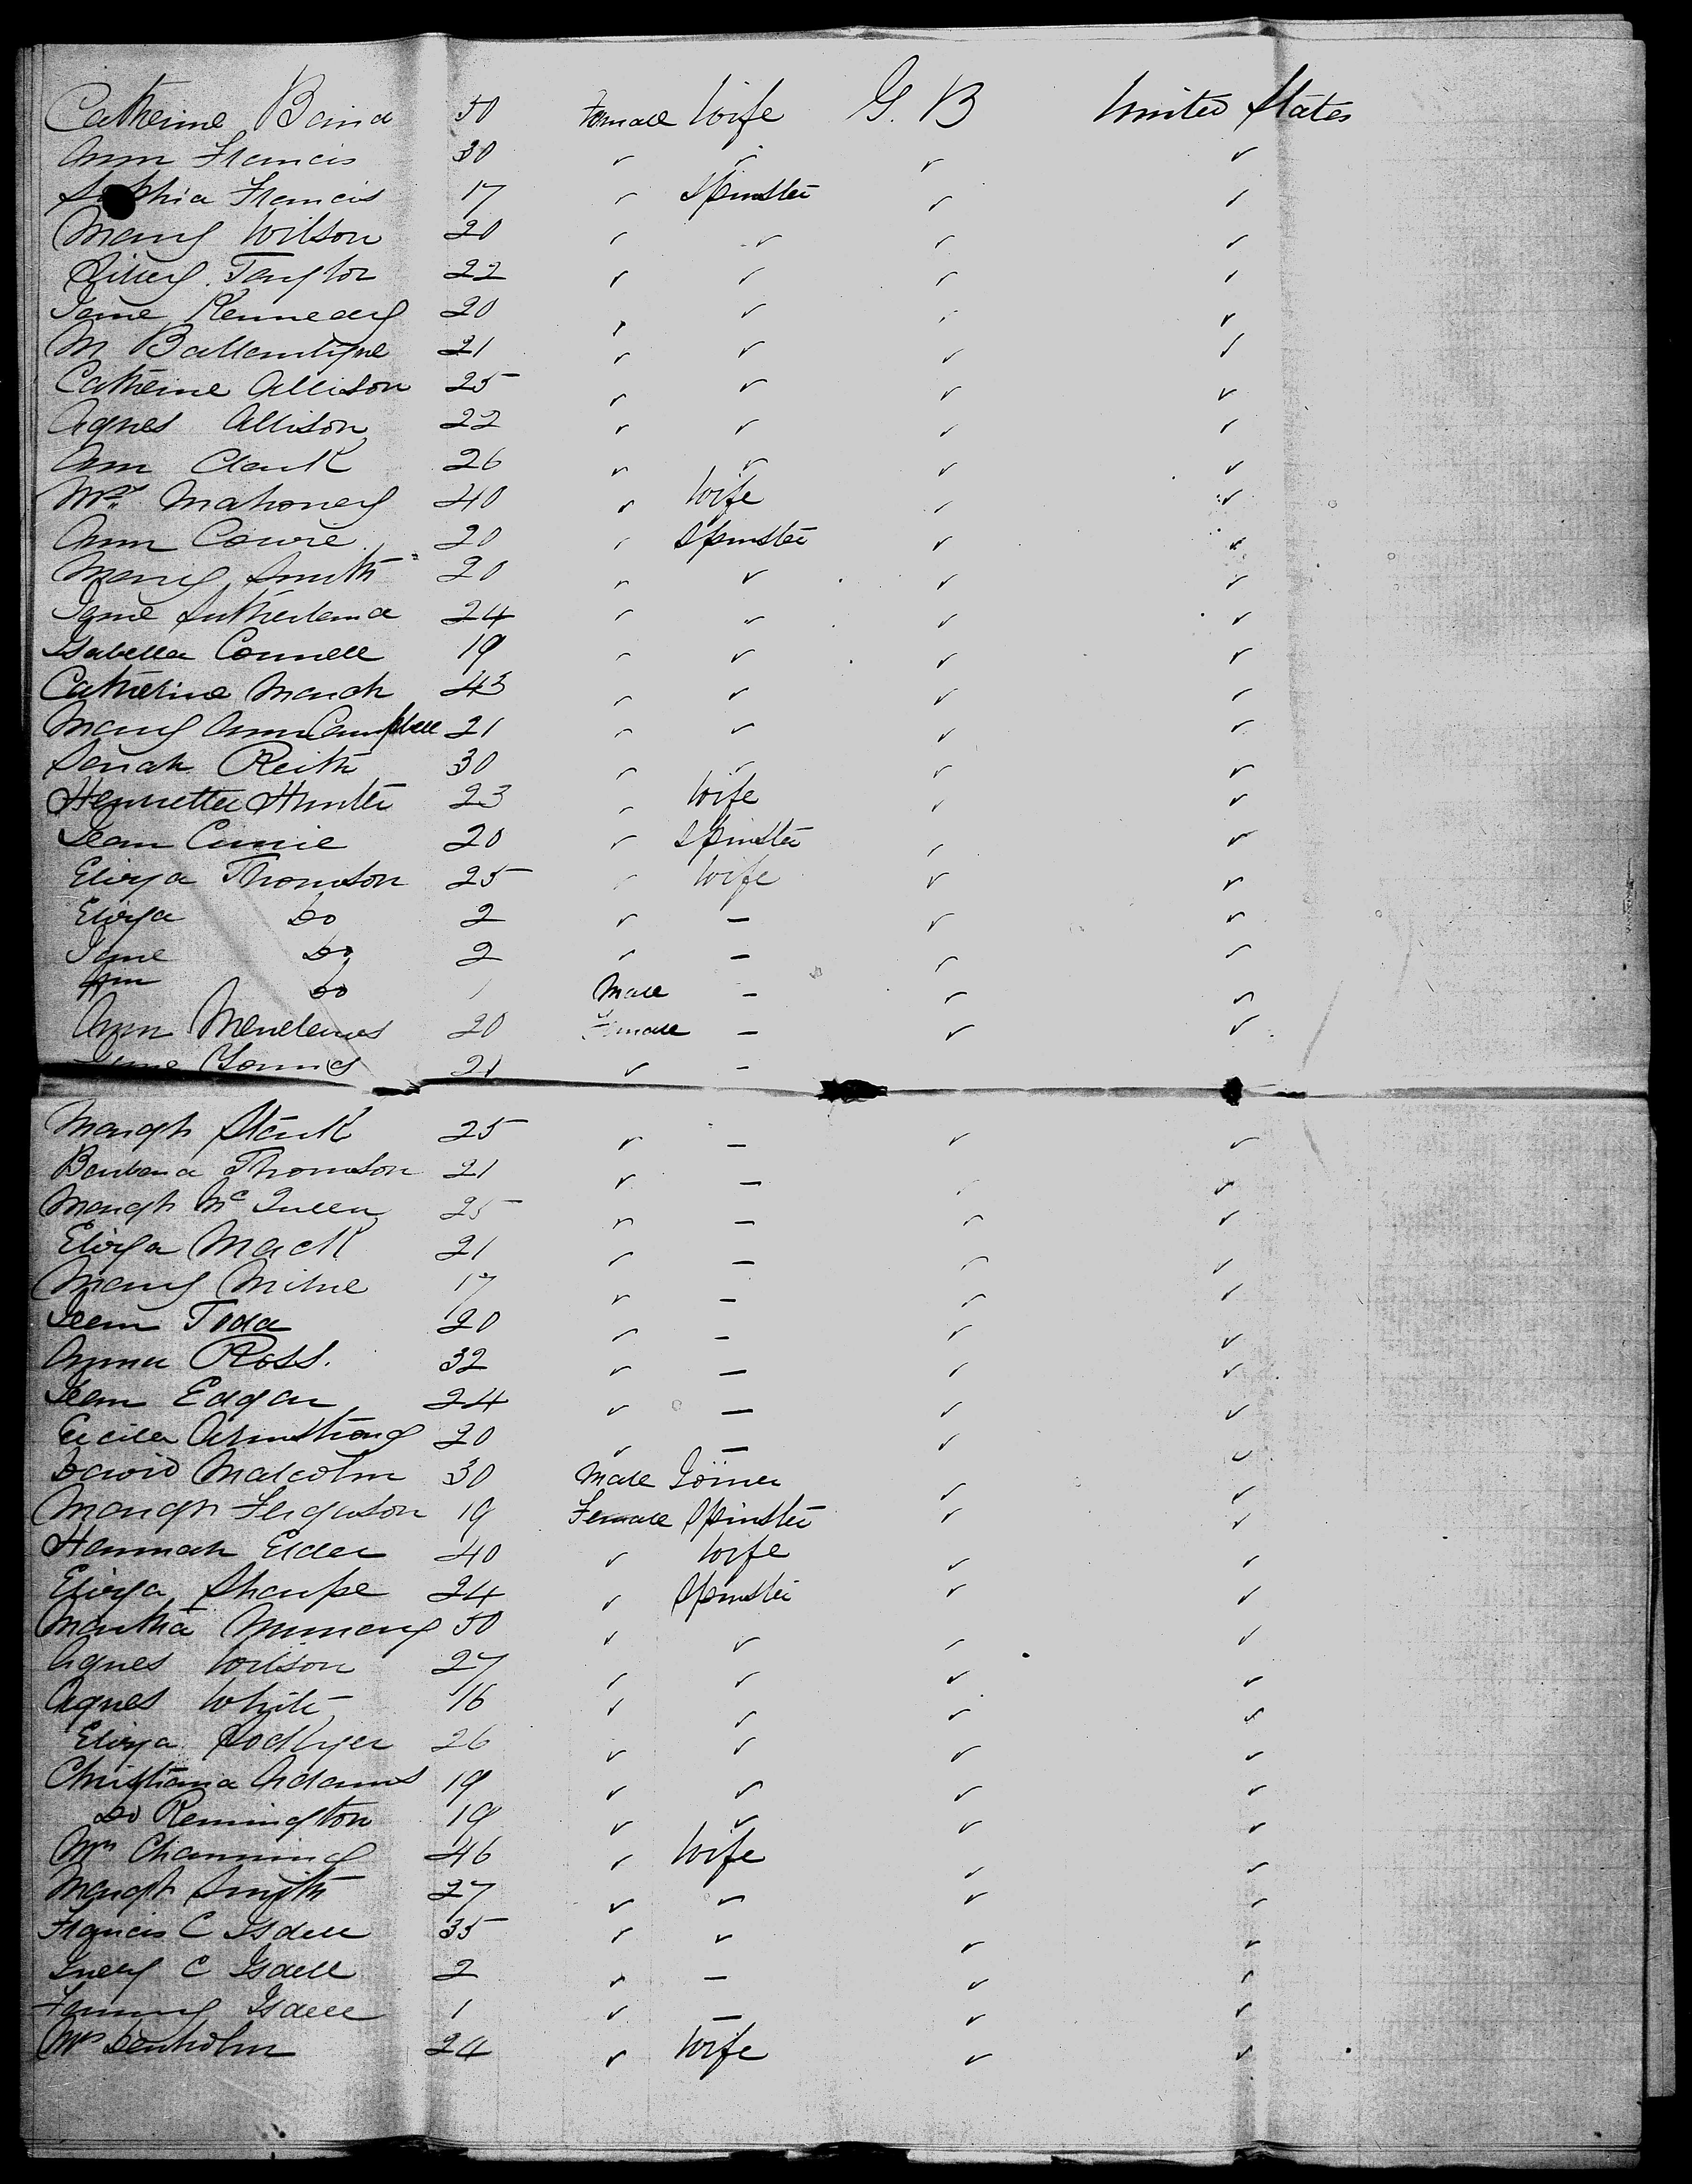 Catherine Baird 50 Female Wife G. B United States
Ann Francis 30 ✓ ✓ ✓ ✓
Sophia Francis 17 ✓ Spinster ✓ ✓
Mary Wilson 20 ✓ ✓ ✓ ✓
Taylor 22 ✓ ✓ ✓ ✓
Jane Kennedy 20 ✓ ✓ ✓ ✓
M Ballantyne 21 ✓ ✓ ✓ ✓
Catherine Allison 25 ✓ ✓ ✓ ✓
Agnes Allison 22 ✓ ✓ ✓ ✓
Ann Clark 26 ✓ ✓ ✓ ✓
Mrs Mahoney 40 ✓ Wife ✓ ✓
Ann Cowie 20 ✓ Spinster ✓ ✓
Mary Smith 20 ✓ ✓ ✓ ✓
Jane Sutherland 24 ✓ ✓ ✓ ✓
Isabella Connell 19 ✓ ✓ ✓ ✓
Catherine March 43 ✓ ✓ ✓ ✓
Mary Ann Campbell 21 ✓ ✓ ✓ ✓
Sarah Reith 30 ✓ ✓ ✓ ✓
Henrietta Hunter 23 ✓ Wife ✓ ✓
Jean Currie 20 ✓ Spinster ✓ ✓
Eliza Thomson 25 ✓ Wife ✓ ✓
Eliza Do 2 ✓ - ✓ ✓
Jane Do 2 ✓ - ✓ ✓
Do 1 Male - ✓ ✓
Ann 20 Female - ✓ ✓
Jane Young 21 ✓ -
Margt Stark 25 ✓ - ✓ ✓
Barbara Thomson 21 ✓ - ✓ ✓
Margt McQueen 25 ✓ - ✓ ✓
Eliza Mack 21 ✓ - ✓ ✓
Mary Milne 17 ✓ - ✓ ✓
Jean Todd 20 ✓ - ✓ ✓
Anna Ross. 32 ✓ - ✓ ✓
Jean Edgar 24 ✓ - ✓ ✓
Cecilia Armstrong 20 ✓ - ✓ ✓
David Malcolm 30 Male Joiner ✓ ✓
Margt Ferguson 19 Female Spinster ✓ ✓
Hannah Elder 40 ✓ Wife ✓ ✓
Eliza Sharpe 24 ✓ Spinster ✓ ✓
Martha 50 ✓ ✓ ✓ ✓
Agnes Wilson 27 ✓ ✓ ✓ ✓
Agnes White 16 ✓ ✓ ✓ ✓
Eliza 26 ✓ ✓ ✓ ✓
Christiana Adams 19 ✓ ✓ ✓ ✓
Do Remington 19 ✓ ✓ ✓ ✓
Mrs Channing 46 ✓ Wife ✓ ✓
Margt Smith 27 ✓ ✓ ✓ ✓
Francis C Isdell 35 ✓ ✓ ✓ ✓
C Isdell 2 ✓ - ✓ ✓
Fanny Isdell 1 ✓ - ✓ ✓
Mrs Denholm 24 ✓ Wife ✓ ✓